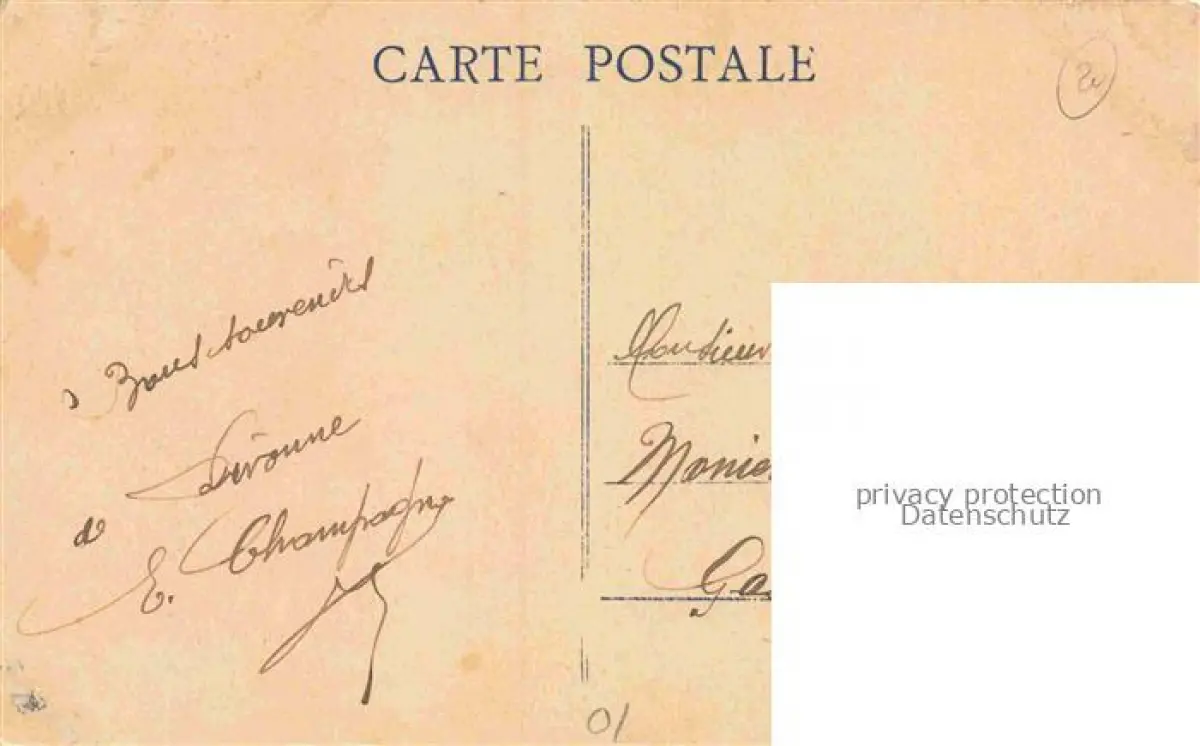 CARTE POSTALE
Bons souvenirs
de
E. Champagne
Monsieur
01
privacy protection
Datenschutz